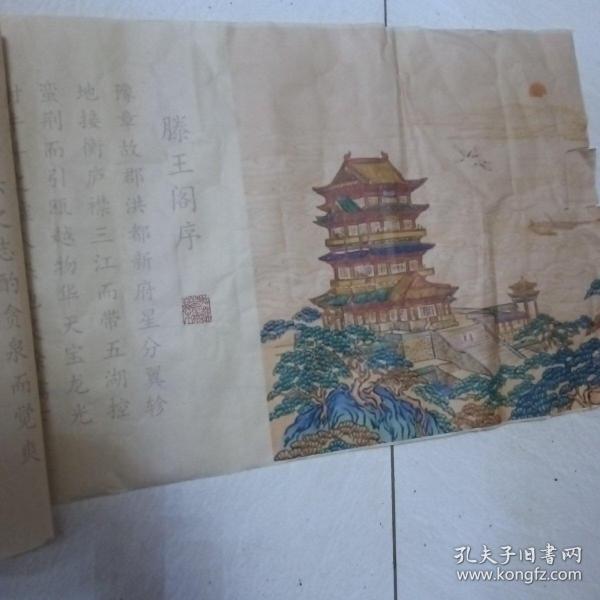 滕王阁序
豫章故郡洪都新府星分翼轸
地接衡庐襟三江而带五湖控
蛮荆而引瓯越物华天宝龙光
之志
酌贪泉而觉爽
孔夫子旧书网
www.kongfz.com